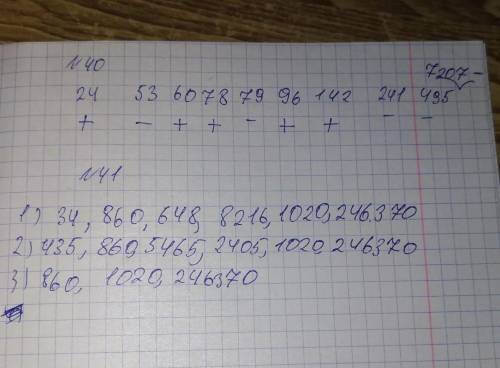 №40
7207-
24 53 60 78 79 96 142 241 495
+ - + + - + + - -
№41
1) 34, 860, 648, 8216, 1020, 246370
2) 435, 860, 5465, 2405, 1020, 246370
3) 860, 1020, 246370